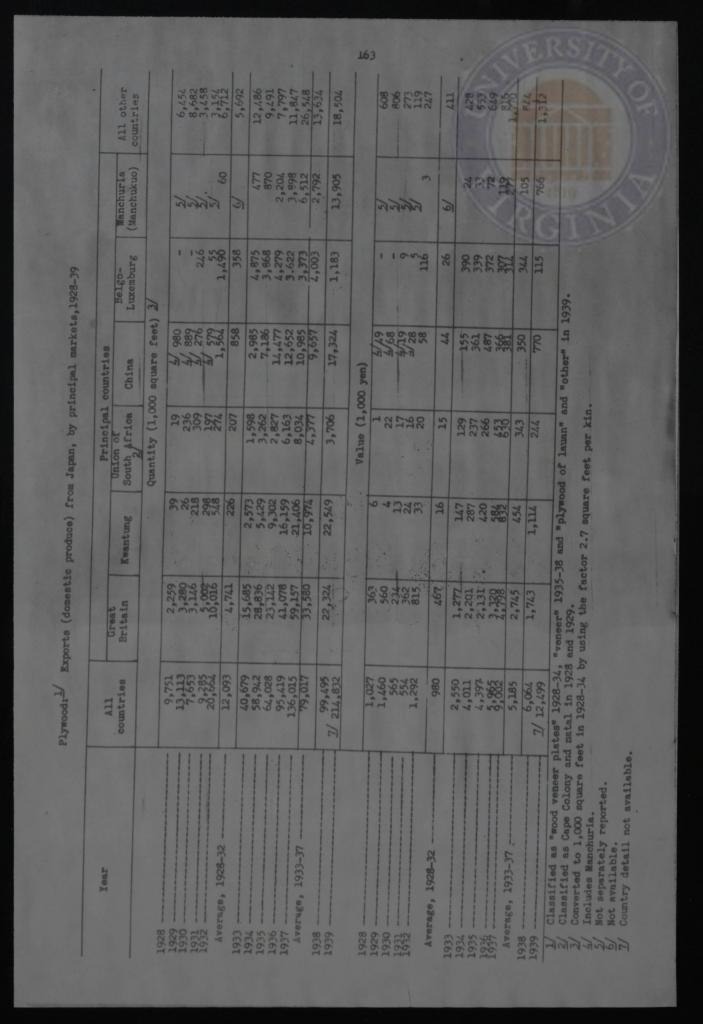 163
Plywood:1/ Exports (domestic produce) from Japan, by principal markets,1928-39
Year All countries Principal countries
Great Britain Kwantung Union of South Africa 2/ China Belgo-Luxemburg Manchuria (Manchukuo) All other countries
Quantity (1,000 square feet) 3/
1928 9,751 2,259 39 19 4/ 980 - 5/ 6,454
1929 13,113 3,280 26 236 4/ 889 - 5/ 8,682
1930 7,653 3,146 218 309 4/ 276 246 5/ 3,458
1931 9,285 5,002 298 197 4/ 579 55 5/ 3,154
1932 20,664 10,016 548 274 1,564 1,490 60 6,712
Average, 1928-32 12,093 4,741 226 207 858 358 6/ 5,692
1933 40,679 15,685 2,573 1,598 2,985 4,875 477 12,486
1934 58,942 28,836 5,429 3,262 7,186 3,868 870 9,491
1935 64,028 23,142 9,302 2,827 14,477 4,279 2,204 7,797
1936 95,419 41,078 16,159 6,163 12,652 3,622 3,898 11,847
1937 136,015 59,157 21,406 8,034 10,985 3,373 6,512 26,548
Average, 1933-37 79,017 33,580 10,974 4,377 9,657 4,003 2,792 13,634
1938 99,495 22,324 22,549 3,706 17,324 1,183 13,905 18,504
1939 7/ 214,832
Value (1,000 yen)
1928 1,027 363 6 1 4/49 - 5/ 608
1929 1,460 560 4 22 4/68 - 5/ 806
1930 565 234 13 17 4/19 9 5/ 273
1931 554 362 24 16 28 5 5/ 119
1932 1,292 815 33 20 58 116 3 247
Average, 1928-32 980 467 16 15 44 26 6/ 411
1933 2,550 1,277 147 129 155 390 24 428
1934 4,011 2,201 287 237 361 339 33 553
1935 4,397 2,131 420 266 487 372 72 649
1936 5,965 3,120 584 453 366 307 119
1937 9,002 832 630 381 314
Average, 1933-37 5,185 2,745 454 343 350 344 105 844
1938 6,064 1,743 1,114 244 770 115 766 1,312
1939 7/ 12,499
1/ Classified as "wood veneer plates" 1928-34, "veneer" 1935-38 and "plywood of lauan" and "other" in 1939.
2/ Classified as Cape Colony and natal in 1928 and 1929.
3/ Converted to 1,000 square feet in 1928-34 by using the factor 2.7 square feet per kin.
4/ Includes Manchuria.
5/ Not separately reported.
6/ Not available.
7/ Country detail not available.
UNIVERSITY OF VIRGINIA